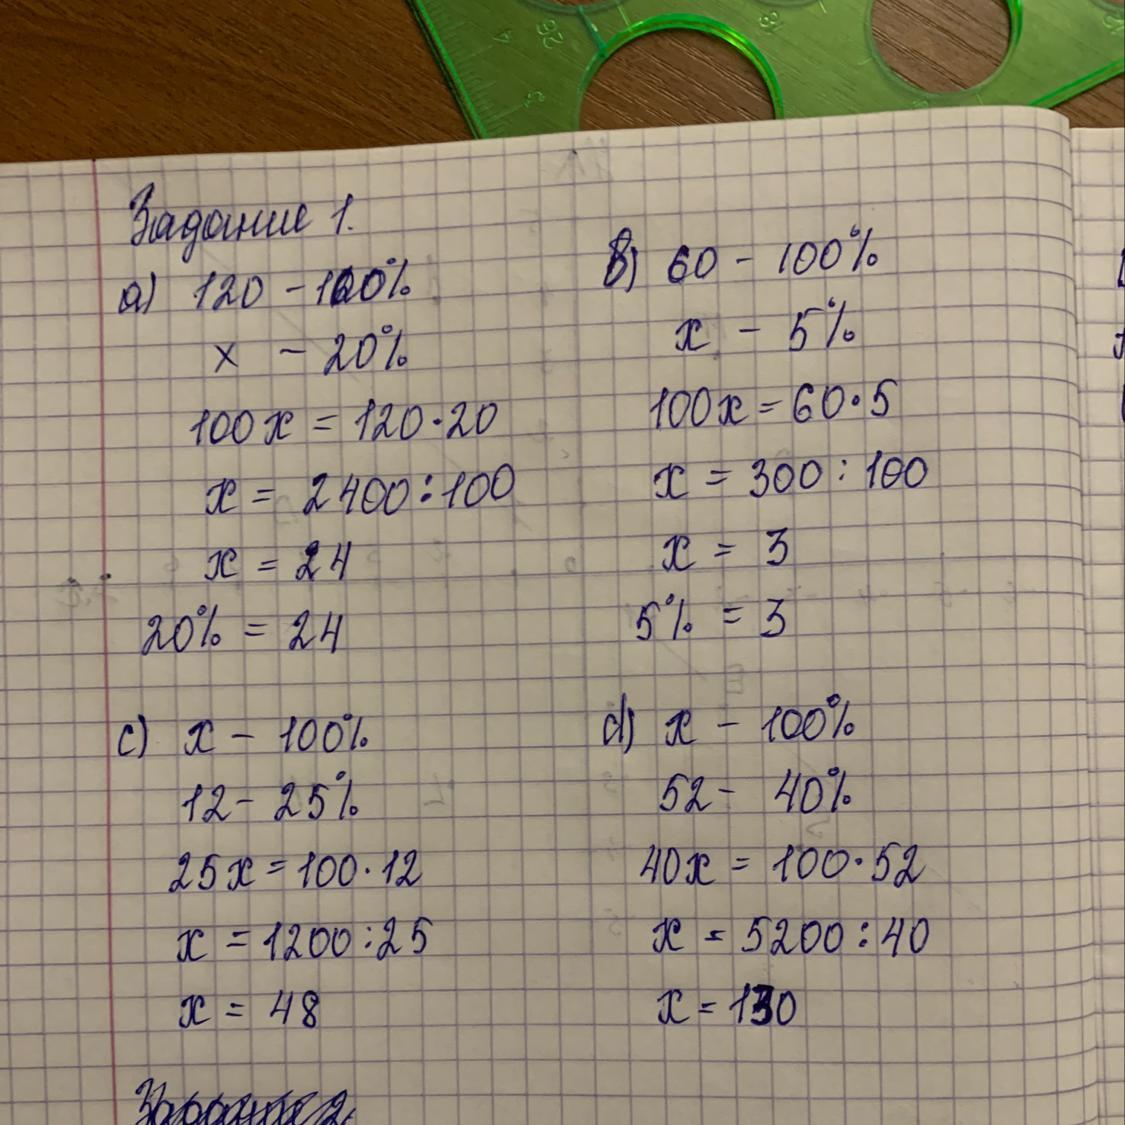 Задание 1.
a) 120 - 100%
x - 20%
100x = 120·20
x = 2400:100
x = 24
20% = 24
b) 60 - 100%
x - 5%
100x = 60·5
x = 300:100
x = 3
5% = 3
c) x - 100%
12 - 25%
25x = 100·12
x = 1200:25
x = 48
d) x - 100%
52 - 40%
40x = 100·52
x = 5200:40
x = 130
Задание 2.